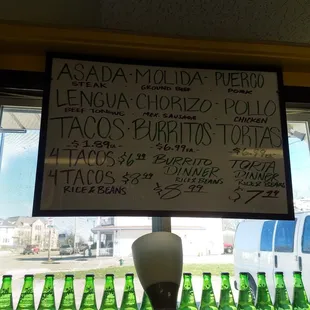 ASADA - MOLIDA - PUERCO
STEAK GROUND BEEF PORK
LENGUA - CHORIZO - POLLO
BEEF TONGUE MEX. SAUSAGE CHICKEN
TACOS - BURRITOS - TORTAS
$1.89 $6.99
4 TACOS $6.99 BURRITO TORTA
4 TACOS $8.99 DINNER DINNER
RICE & BEANS RICE & BEANS RICE & BEANS
$8.99 $7.99